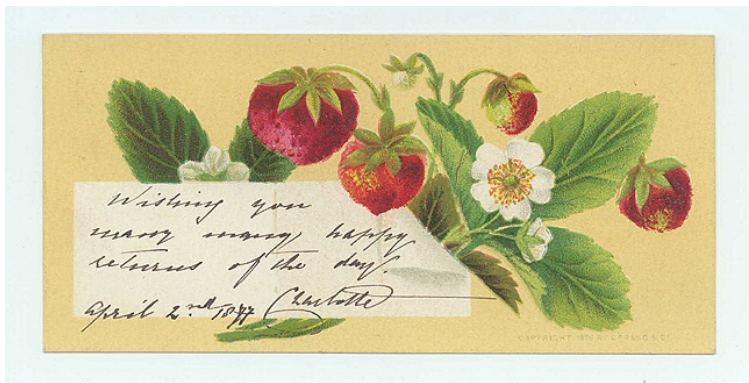 Wishing you
many many happy
returns of the day.
April 2nd 1877 Charlotte
COPYRIGHT